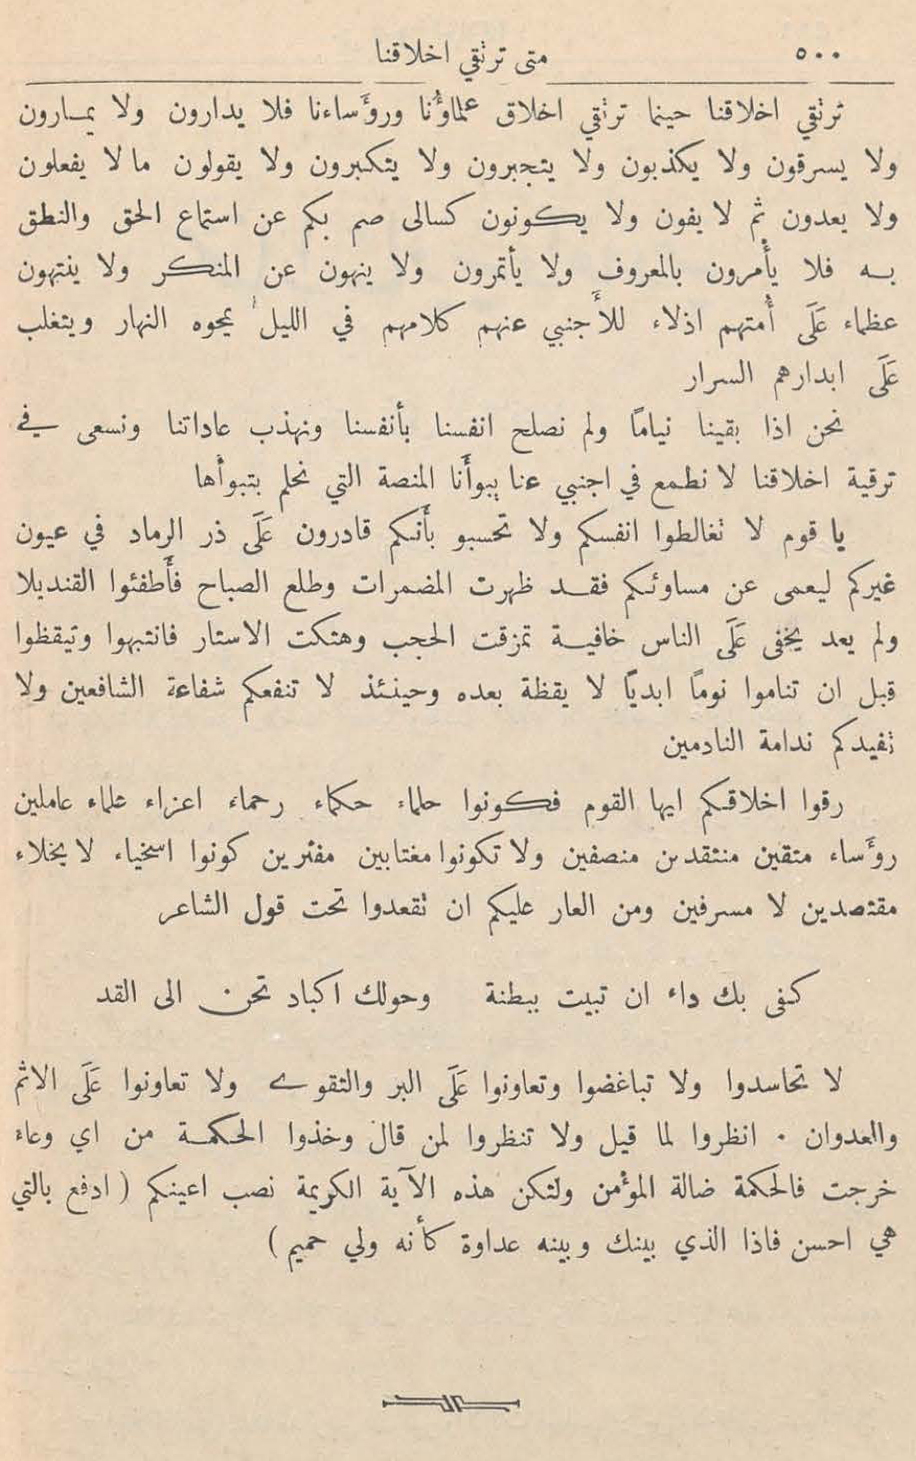 ٥٠٠
متى ترتقي اخلاقنا
ترتقي اخلاقنا حينما ترتقي اخلاق علماؤنا ورؤساءنا فلا يدارون ولا يمارون
ولا يسرقون ولا يكذبون ولا يتجبرون ولا يتكبرون ولا يقولون مالا يفعلون
ولا يعدون ثم لا يفون ولا يكونون كسالى صم بكم عن استماع الحق والنطق
به فلا يأمرون بالمعروف ولا يأتمرون ولا ينهون عن المنكر ولا ينتهون
عظماء عَلَى أُمتهم اذلاء للأجنبي عنهم كلامهم في الليل يمحوه النهار ويتغلب
عَلَى ابدارهم السرار
نحن اذا بقينا نيامًا ولم نصلح انفسنا بأنفسنا ونهذب عاداتنا ونسعى في
ترقية اخلاقنا لا نطمع في اجنبي عنا يبوأنا المنصة التي نحلم بتبوأها
يا قوم لا تغالطوا انفسكم ولا تحسبو بأنكم قادرون عَلَى ذر الرماد في عيون
غيركم ليعمى عن مساوئكم فقد ظهرت المضمرات وطلع الصباح فأطفئوا القنديلا
ولم يعد يخفى عَلَى الناس خافية تمزقت الحجب وهتكت الاستار فانتبهوا وتيقظوا
قبل ان تناموا نومًا ابديًا لا يقظة بعده وحينئذ لا تنفعكم شفاعة الشافعين ولا
تفيدكم ندامة النادمين
رقوا اخلاقكم ايها القوم فكونوا حلماء حكماء رحماء اعزاء علماء عاملين
رؤساء متقين منتقدين منصفين ولا تكونوا مغتابين مفترين كونوا اسخياء لا بخلاء
مقتصدين لا مسرفين ومن العار عليكم ان تقعدوا تحت قول الشاعر
كفى بك داء ان تبيت ببطنة وحولك اكباد تحن الى القد
لا تحاسدوا ولا تباغضوا وتعاونوا عَلَى البر والتقوى ولا تعاونوا عَلَى الاثم
والعدوان ٠ انظروا لما قيل ولا تنظروا لمن قال وخذوا الحكمة من اي وعاء
خرجت فالحكمة ضالة المؤمن ولتكن هذه الآية الكريمة نصب اعينكم ( ادفع بالتي
هي احسن فاذا الذي بينك وبينه عداوة كأنه ولي حميم )